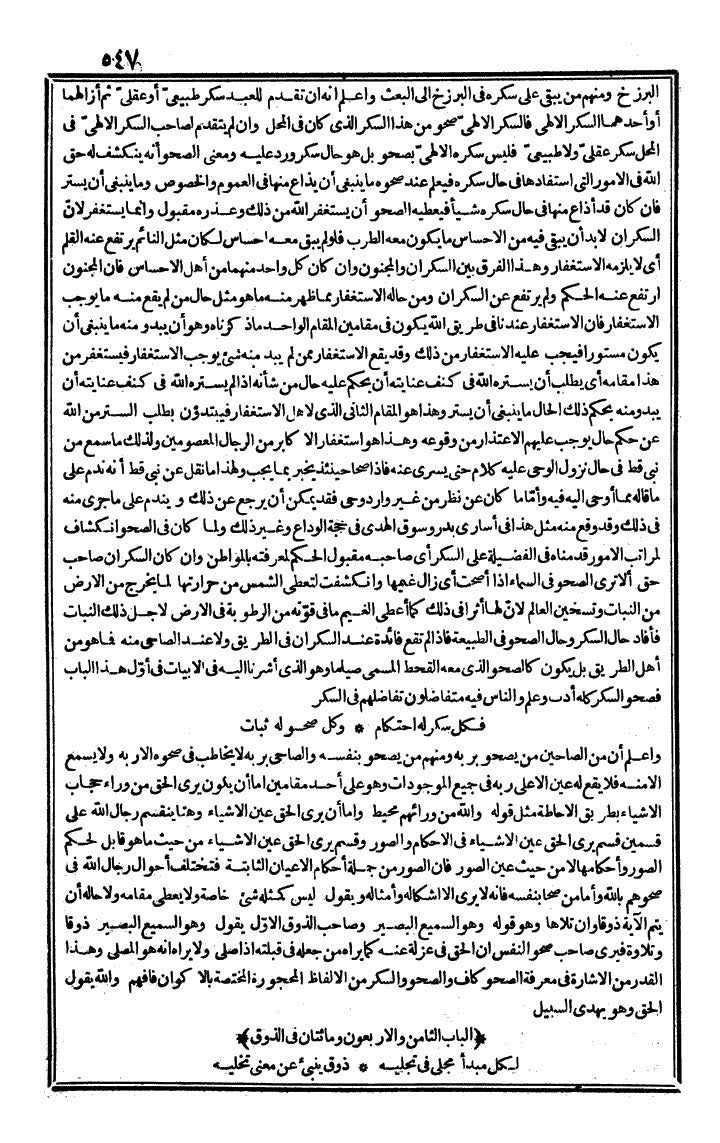 ٥٤٧
البرزخ ومنهم من يبقى على سكره فى البرزخ الى البعث واعلم انه ان تقدم للعبد سكر طبيعى أو عقلى ثم أزالهما
أو أحدهما السكر الالهى فالسكر الالهى صحو من هذا السكر الذى كان فى المحل وان لم يتقدم لصاحب السكر الالهى فى
المحل سكر عقلى ولا طبيعى فليس سكره الالهى بصحو بل هو حال سكر ورد عليه ومعنى الصحو أنه ينكشف له حق
الله فى الامور التى استفادها فى حال سكره فيعلم عند صحوه ما ينبغى أن يذاع منها فى العموم والخصوص وما ينبغى أن يستر
فان كان قد أذاع منها فى حال سكره شيأ فيعطيه الصحو أن يستغفر الله من ذلك وعذره مقبول وانما يستغفر لان
السكران لا بد أن يبقى فيه من الاحساس ما يكون معه الطرب فاولم يبق معه احساس لكان مثل النائم يرتفع عنه القلم
أى لا يلزمه الاستغفار وهذا الفرق بين السكران والمجنون وان كان كل واحد منهما من أهل الاحساس فان المجنون
ارتفع عنه الحكم ولم يرتفع عن السكران ومن حاله الاستغفار مما ظهر منه ما هو مثل حال من لم يقع منه ما يوجب
الاستغفار فان الاستغفار عندنا فى طريق الله يكون فى مقامين المقام الواحد ما ذكرناه وهو أن يبدو منه ما ينبغى أن
يكون مستورا فيجب عليه الاستغفار من ذلك وقد يقع الاستغفار ممن لم يبد منه شئ يوجب الاستغفار فيستغفر من
هذا مقامه أى يطلب أن يستره الله فى كنف عنايته أن يحكم عليه حال من شأنه اذا لم يستره الله فى كنف عنايته أن
يبدو منه بحكم ذلك الحال ما ينبغى أن يستر وهذا هو المقام الثانى الذى لاهل الاستغفار فيبتدؤن بطلب الستر من الله
عن حكم حال يوجب عليهم الاعتذار من وقوعه وهذا هو استغفار الاكابر من الرجال المعصومين ولذلك ما سمع من
نبى قط فى حال نزول الوحى عليه كلام حتى يسرى عنه فاذا صحا حينئذ يخبر بما يجب ولهذا ما نقل عن نبى قط أنه ندم على
ما قاله مما أوحى اليه فيه وأما ما كان عن نظر من غير وارد وحى فقد يمكن أن يرجع عن ذلك ويندم على ما جرى منه
فى ذلك وقد وقع منه مثل هذا فى أسارى بدر وسوق الهدى فى حجة الوداع وغير ذلك ولما كان فى الصحو انكشاف
لمراتب الامور قدمناه فى الفضيلة على السكر أى صاحبه مقبول الحكم لمعرفته بالمواطن وان كان السكران صاحب
حق ألا ترى الصحو فى السماء اذا أصحت أى زال غيمها وانكشفت لتعطى الشمس من حرارتها لما يخرج من الارض
من النبات وتسخين العالم لان لها أثرا فى ذلك كما أعطى الغيم ما فى قوته من الرطوبة فى الارض لاجل ذلك النبات
فأفاد حال السكر وحال الصحو فى الطبيعة فاذا لم تقع فائدة عند السكران فى الطريق ولا عند الصاحى منه فما هو من
أهل الطريق بل يكون كالصحو الذى معه القحط المسمى صيلما وهو الذى أشرنا اليه فى الابيات فى أول هذا الباب
فصحو السكر كله أدب وعلم والناس فيه متفاضلون تفاضلهم فى السكر
فكل سكر له احتكام * وكل صحو له ثبات
واعلم أن من الصاحين من يصحو بربه ومنهم من يصحو بنفسه والصاحى بربه لا يخاطب فى صحوه الا ربه ولا يسمع
الا منه فلا يقع له عين الا على ربه فى جميع الموجودات وهو على أحد مقامين اما أن يكون يرى الحق من وراء حجاب
الاشياء بطريق الاحاطة مثل قوله والله من ورائهم محيط واما أن يرى الحق عين الاشياء وهنا ينقسم رجال الله على
قسمين قسم يرى الحق عين الاشياء فى الاحكام والصور وقسم يرى الحق عين الاشياء من حيث ما هو قابل لحكم
الصور وأحكامها لا من حيث عين الصور فان الصور من جملة أحكام الاعيان الثابتة فتختلف أحوال رجال الله فى
صحوهم بالله وأما من صحا بنفسه فانه لا يرى الا أشكاله وأمثاله ويقول ليس كمثله شئ خاصة ولا يعطى مقامه ولا حاله أن
يتم الآية ذوقا وان تلاها وهو قوله وهو السميع البصير وصاحب الذوق الاول يقول وهو السميع البصير ذوقا
وتلاوة فيرى صاحب صحو النفس ان الحق فى عزلة عنه كما يراه من جعله فى قبلته اذا صلى ولا يراه انه هو المصلى وهذا
القدر من الاشارة فى معرفة الصحو كاف والصحو والسكر من الالفاظ المحجورة المختصة بالاكوان فافهم والله يقول
الحق وهو يهدى السبيل
﴿الباب الثامن والاربعون ومائتان فى الذوق﴾
لكل مبدأ مجلى فى تجليه * ذوق ينبئ عن معنى تخليه